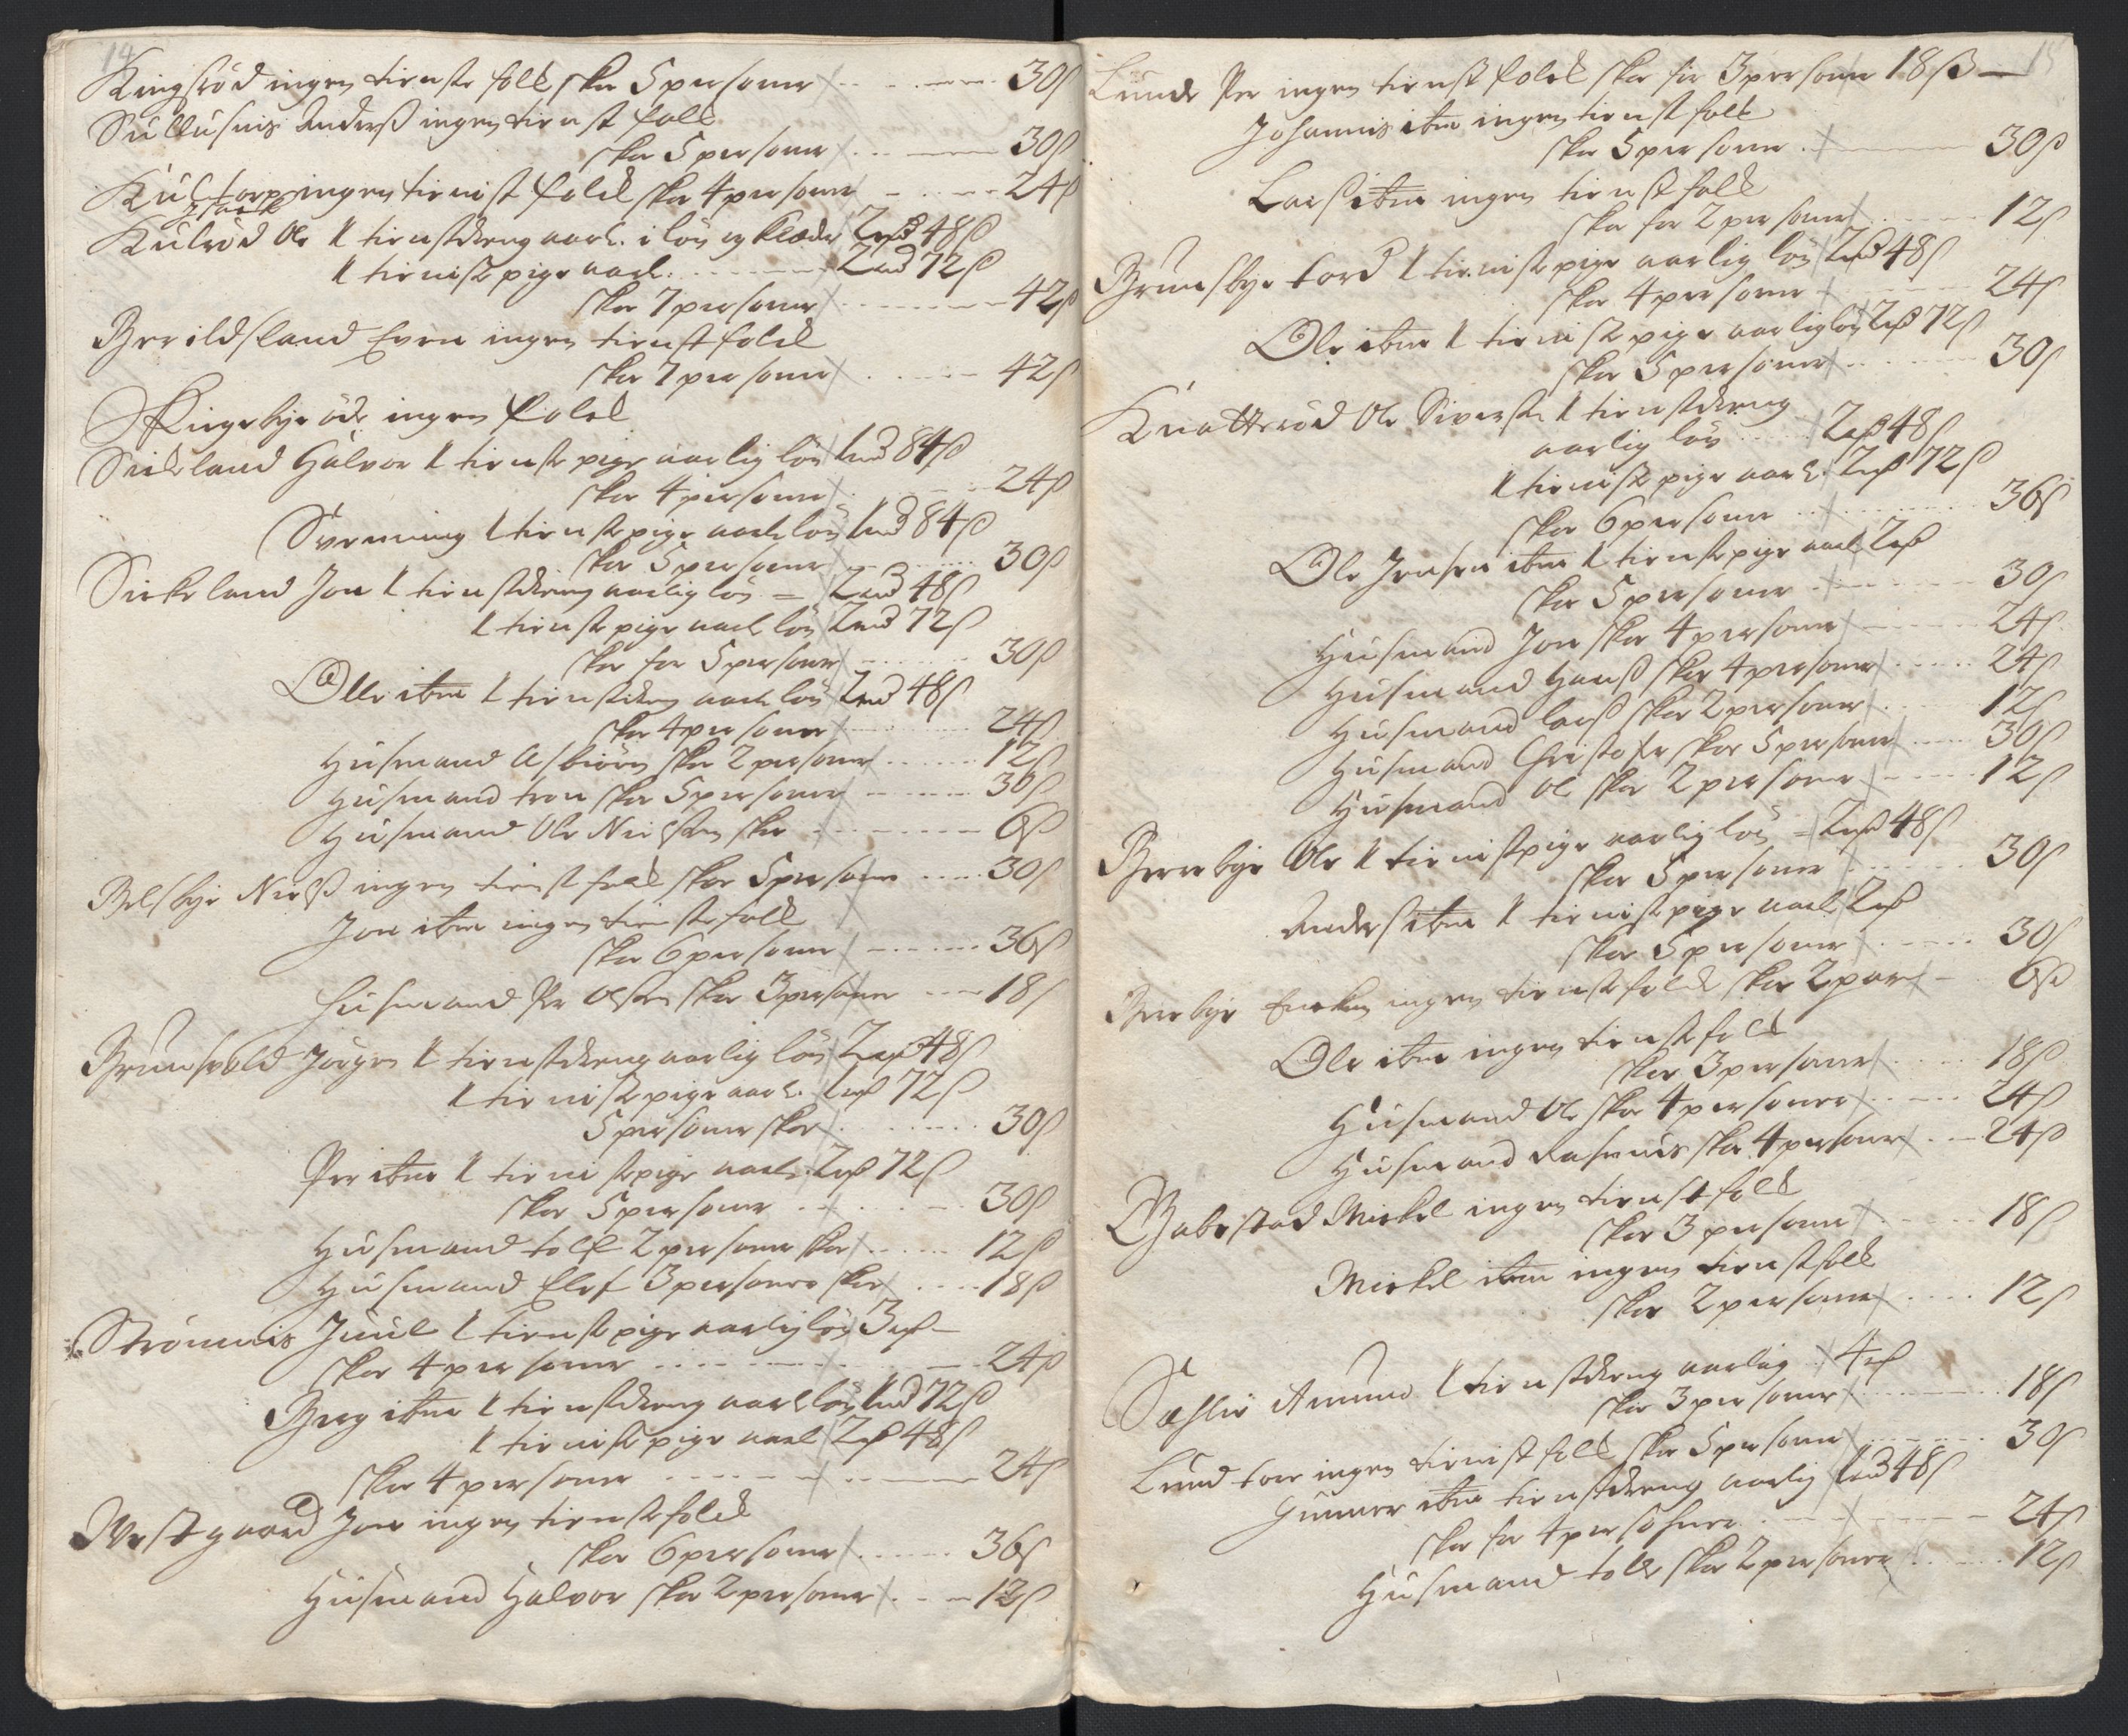 14
Ringsröd ingen tienste folk skor 5 personer 30 s
Sullusnis Anderß ingen tienst folk
skor 5 personer 30 s
Kultorp ingen tienist folck skor 4 personer 24 s
Kulröd Ole 1 tienstdreng aarl. i lön og klæder 2 rd 48 s
1 tieniste pige aarl. 2 rd 72 s
skor 7 personer 42 s
Berildsland Even ingen tienst folck
skor 7 personer 42 s
Ringebye öde ingen folck
Sickeland Halvor 1 tienste pige aarlig lön 1 rd 84 s
skor 4 personer 24 s
Svenning 1 tienste pige aarl lön 1 rd 84 s
skor 5 personer 30 s
Sickeland Jon 1 tienstdreng aarlig lön 2 rd 48 s
1 tienste pige aarl lön 2 rd 72 s
skor for 5 personer 30 s
Olle ibm 1 tienstdreng aarl lön 2 rd 48 s
skor 4 personer 24 s
Husmand Asbiörn skor 2 personer 12 s
Husmand tron skor 5 personer 30 s
Husmand Ole Nielsen skor 6 s
Belsbye Nielß ingen tienst folck skor 5 personer 30 s
Jon ibm ingen tienste folck
skor 6 personer 36 s
Husmand Per Olsen skor 3 personer 18 s
Grimsvold Jörgen 1 tienstdreng aarlig lön 2 rd 48 s
1 tieniste pige aarl. 1 rd 72 s
5 personer skor 30 s
Per ibm 1 tieniste pige aarl. 2 rd 72 s
skor 5 personer 30 s
Husmand tolf 2 personer skor 12 s
Husmand Elef 3 personer skor 18 s
Strömnis Juul 1 tienste pige aarlig lön 3 rd
skor 4 personer 24 s
Berg ibm 1 tienstdreng aarl lön 1 rd 72 s
1 tieniste pige aarl 2 rd 48 s
skor 4 personer 24 s
Westgaard Jon ingen tienste folck
skor 6 personer 36 s
Husmand Halvor skor 2 personer 12 s
15
Lunde Per ingen tienst folck skor for 3 personer 18 s
Johannis ibm ingen tienst folck
skor 5 personer 30 s
Larß ibm ingen tienst folck
skor for 2 personer 12 s
Grimsbye tord 1 tieniste pige aarlig lön 2 rd 48 s
skor 4 personer 24 s
Ole ibm 1 tieniste pige aarlig lön 2 rd 72 s
skor 5 personer 30 s
Knatteröd Ole Siversen 1 tienstdreng
aarlig lön 2 rd 48 s
1 tieniste pige aarl. 2 rd 72 s
skor 6 personer 36 s
Ole Jensen ibm 1 tienste pige aarl 2 rd
skor 5 personer 30 s
Husmand Jon skor 4 personer 24 s
Husmand Hanß skor 4 personer 24 s
Husmand larß skor 2 personer 12 s
Husmand Christofer skor 5 personer 30 s
Husmand Ole skor 2 personer 12 s
Berrebye Ole 1 tienist pige aarlig lön 2 rd 48 s
skor 5 personer 30 s
Anders ibm 1 tieniste pige aarl 2 rd
skor 5 personer 30 s
ingen tienste folck skor 2 par 6 s
Ole ibm ingen tienste folck
skor 3 personer 18 s
Husmand Ole skor 4 personer 24 s
Husmand Rasmus skor 4 personer 24 s
Gabestad Mickel ingen tienst folck
skor 3 personer 18 s
Mickel ibm ingen tienst folck
skor 2 personer 12 s
Amund 1 tienstdreng aarlig 4 rd
skor 3 personer 18 s
Lund tore ingen tienist folck skor 5 personer 30 s
Gunner ibm tienstdreng aarlig 1 rd 48 s
skor for 4 personer 24 s
Husmand tolle skor 2 personer 12 s